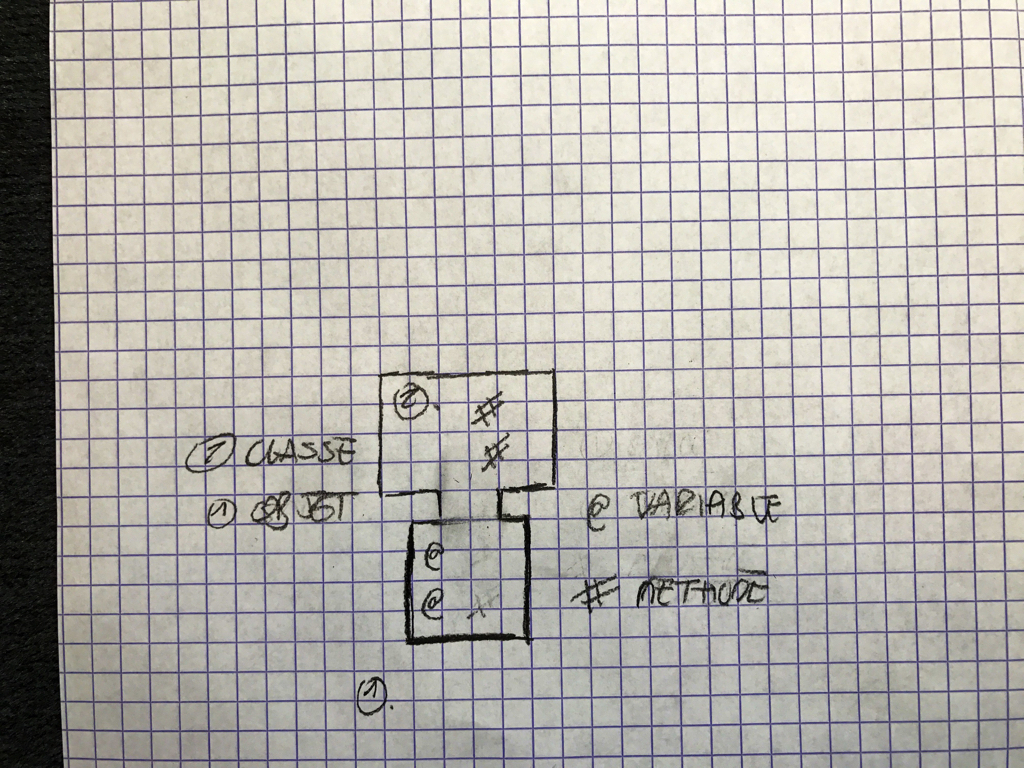 ②.
#
#
② CLASSE
① OBJET
@ VARIABLE
@
@
# METHODE
①.